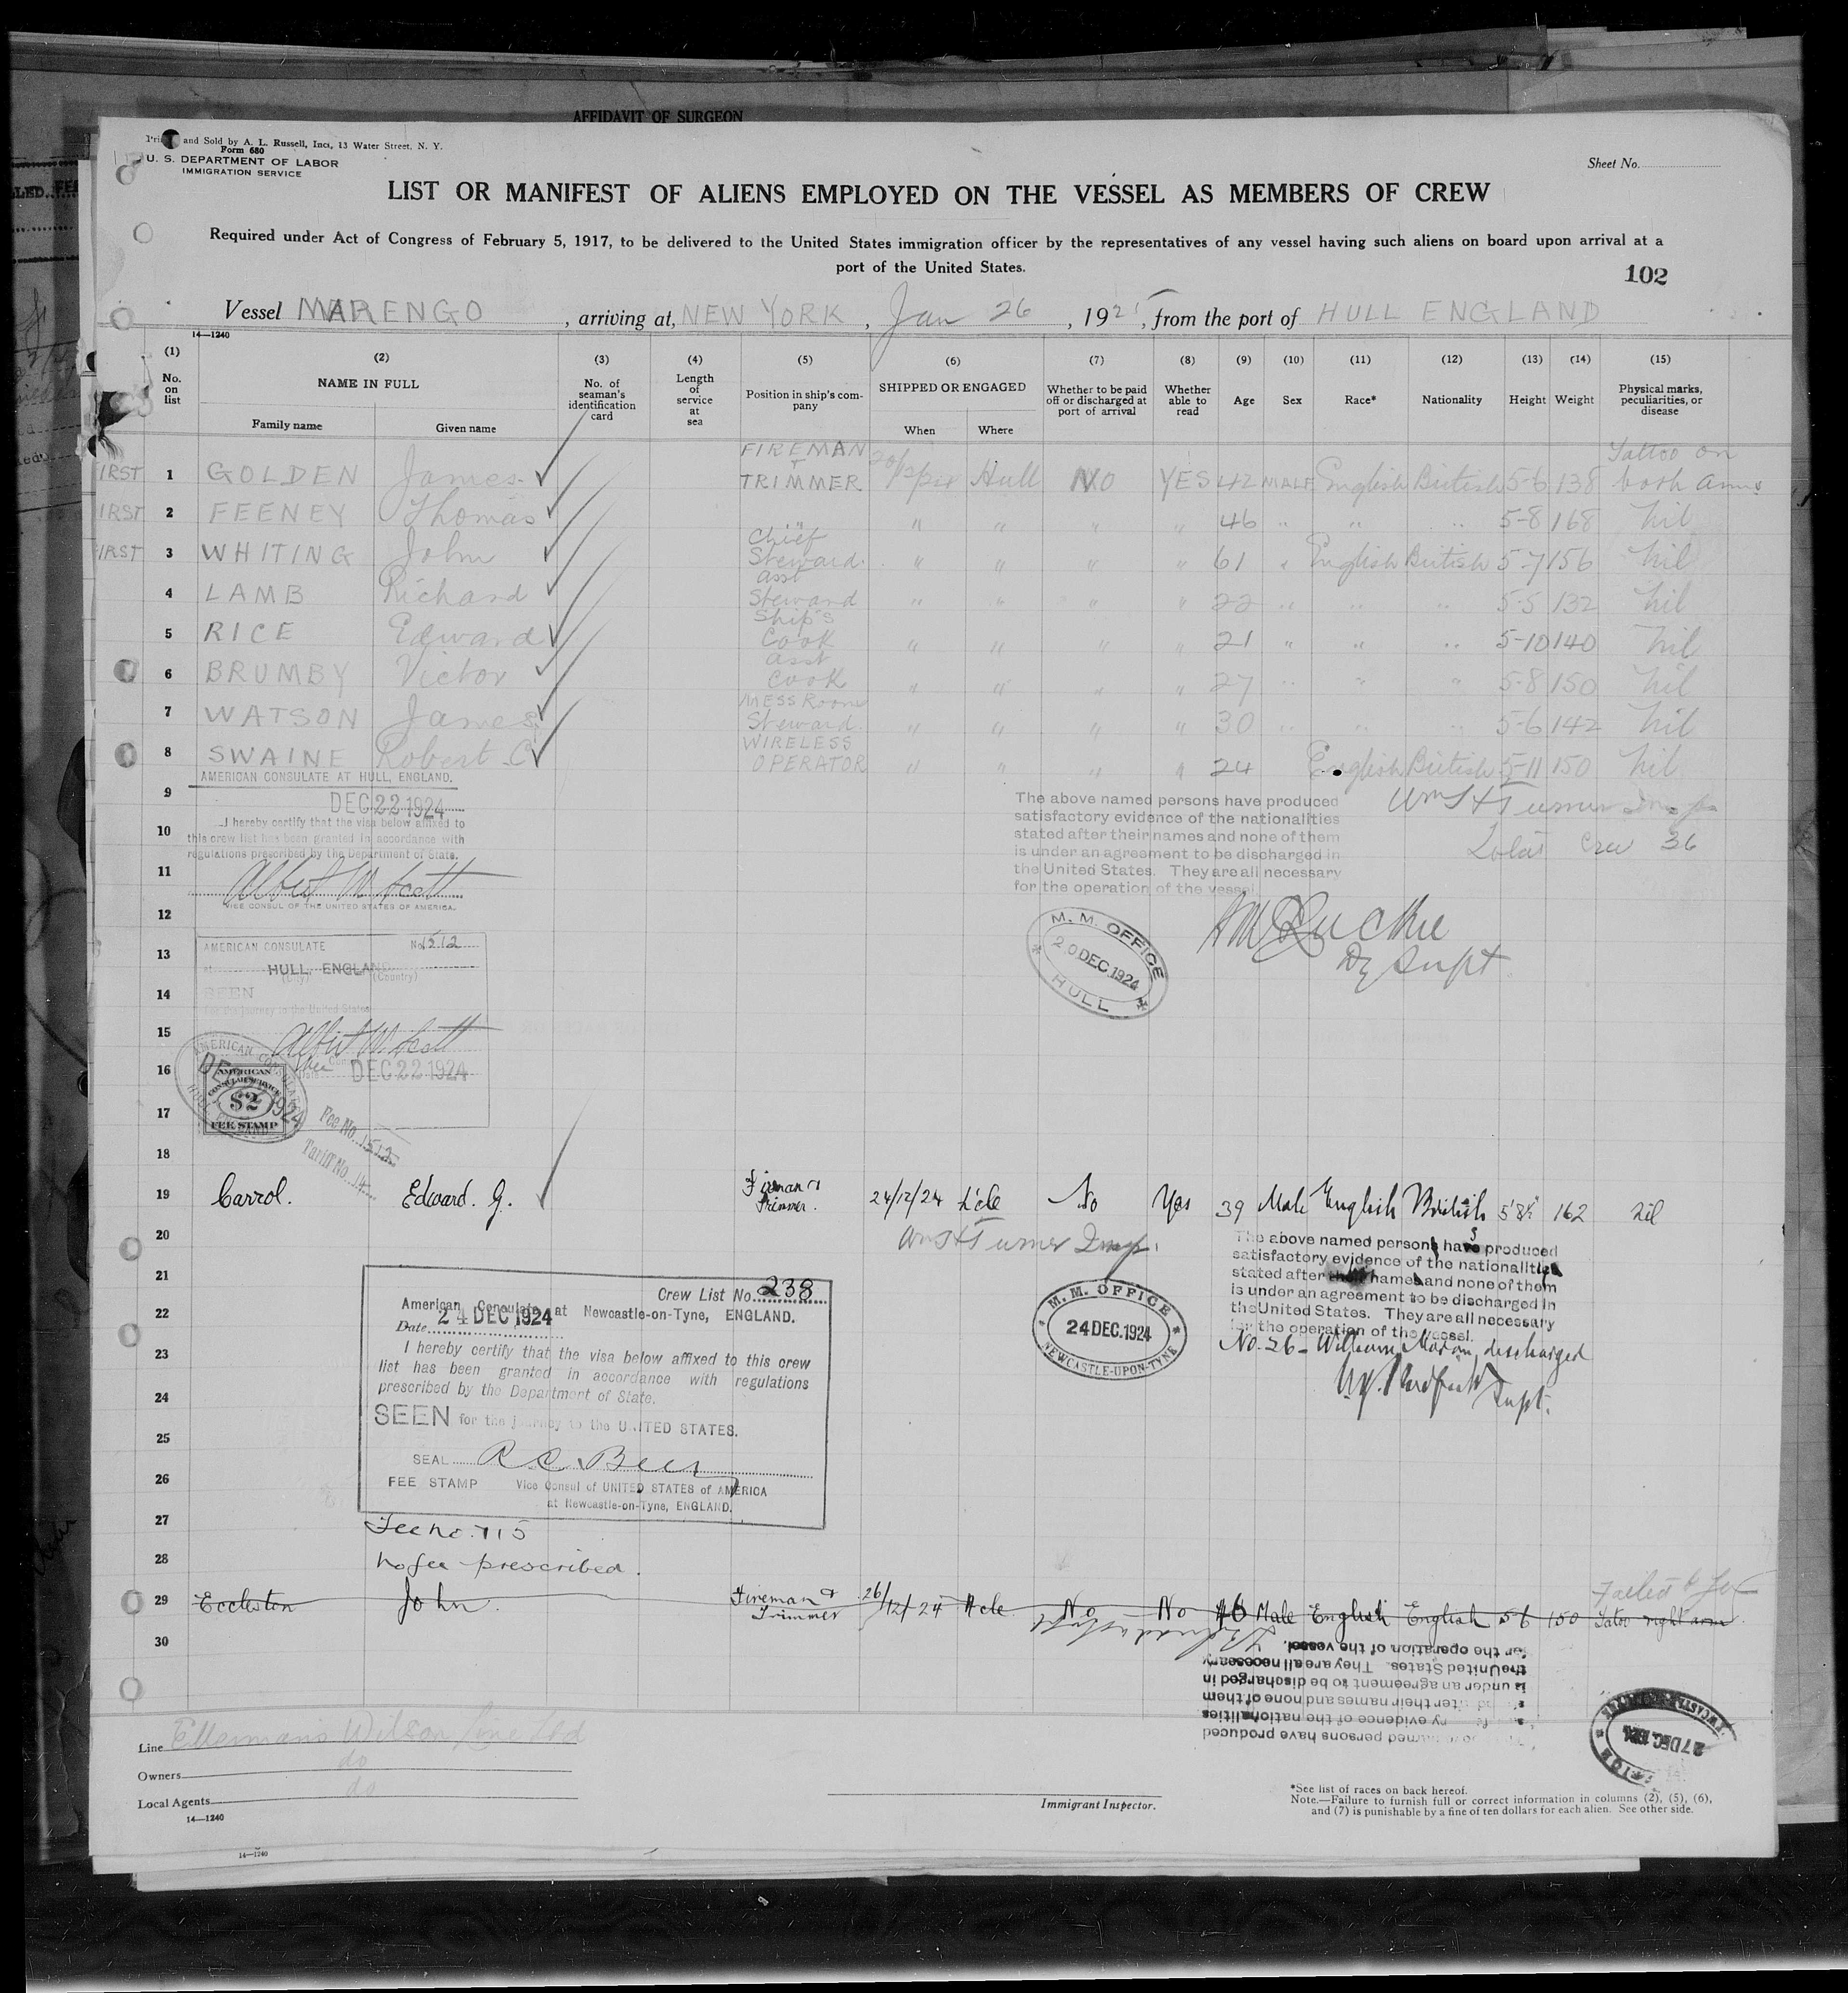 AFFIDAVIT OF SURGEON
and Sold by A. L. Russell, Inc., 13 Water Street, N. Y.
Form 680
U. S. DEPARTMENT OF LABOR
IMMIGRATION SERVICE
Sheet No.
LIST OR MANIFEST OF ALIENS EMPLOYED ON THE VESSEL AS MEMBERS OF CREW
Required under Act of Congress of February 5, 1917, to be delivered to the United States immigration officer by the representatives of any vessel having such aliens on board upon arrival at a
port of the United States.
102
Vessel MARENGO, arriving at, NEW YORK, Jan 26, 1925, from the port of HULL ENGLAND
14—1240
(1) (2) (3) (4) (5) (6) (7) (8) (9) (10) (11) (12) (13) (14) (15)
No. on list NAME IN FULL Family name Given name No. of seaman's identification card Length of service at sea Position in ship's company SHIPPED OR ENGAGED When Where Whether to be paid off or discharged at port of arrival Whether able to read Age Sex Race* Nationality Height Weight Physical marks, peculiarities, or disease
IRST 1 GOLDEN James FIREMAN + TRIMMER Hull NO YES 42 MALE English British 5-6 138 Tattoo on both arms
IRST 2 FEENEY Thomas " " " " 46 " " " 5-8 168 Nil
IRST 3 WHITING John Chief Steward " " " " 61 " English British 5-7 156 Nil
4 LAMB Richard asst Steward " " " " 22 " " " 5-5 132 Nil
5 RICE Edward Ship's Cook " " " " 21 " " " 5-10 140 Nil
6 BRUMBY Victor asst Cook " " " " 27 " " " 5-8 150 Nil
7 WATSON James MESS Room Steward " " " " 30 " " " 5-6 142 Nil
8 SWAINE Robert C WIRELESS OPERATOR " " " " 24 English British 5-11 150 Nil
AMERICAN CONSULATE AT HULL, ENGLAND.
DEC 22 1924
I hereby certify that the visa below affixed to
this crew list has been granted in accordance with
regulations prescribed by the Department of State.
Albert W. Scott
VICE CONSUL OF THE UNITED STATES OF AMERICA.
The above named persons have produced
satisfactory evidence of the nationalities
stated after their names and none of them
is under an agreement to be discharged in
the United States. They are all necessary
for the operation of the vessel.
Total Crew 36
M. M. OFFICE
20 DEC. 1924
HULL
Dy Supt
9
10
11
12
13
14
15
16
17
18
AMERICAN CONSULATE No. 1512
at HULL, ENGLAND
(City) (Country)
SEEN
For the journey to the United States
Albert W. Scott
Vice Consul
Date DEC 22 1924
AMERICAN CONSULATE HULL ENGLAND
AMERICAN
CONSULAR SERVICE
$2
FEE STAMP
Fee No. 1512
Tariff No.
19 Carrol. Edward. G. Fireman & Trimmer. 24/12/24 N'cle No Yes 39 Male English British 162 Nil
20
21
22
23
24
25
26
27
28
The above named person has produced
satisfactory evidence of the nationalities
stated after names and none of them
is under an agreement to be discharged in
the United States. They are all necessary
for the operation of the vessel.
No. 26 - William Moran, discharged
Supt.
M. M. OFFICE
24 DEC. 1924
NEWCASTLE-UPON-TYNE
Crew List No. 238
American Consulate at Newcastle-on-Tyne, ENGLAND.
Date 24 DEC 1924
I hereby certify that the visa below affixed to this crew
list has been granted in accordance with regulations
prescribed by the Department of State.
SEEN for the journey to the UNITED STATES.
SEAL
FEE STAMP Vice Consul of UNITED STATES of AMERICA
at Newcastle-on-Tyne, ENGLAND.
Fee no. 715
No fee prescribed.
29 Eccleston John. Fireman & Trimmer 26/12/24 N'cle No No 46 Male English English 5-6 150 Tatoo right arm
Failed to Join
30
persons have produced
ry evidence of the nationalities
after their names and none of them
is under an agreement to be discharged in
the United States. They are all necessary
for the operation of the vessel.
27 DEC. 1924
Line Ellerman's Wilson Line Ltd
Owners do
Local Agents do
14—1240
Immigrant Inspector.
*See list of races on back hereof.
Note.—Failure to furnish full or correct information in columns (2), (5), (6),
and (7) is punishable by a fine of ten dollars for each alien. See other side.
14—1240